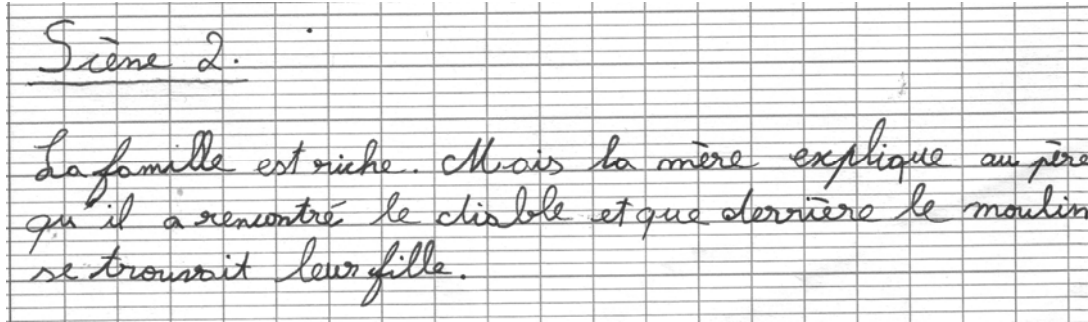 Scène 2.
La famille est riche. Mais la mère explique au père
qu'il a rencontré le diable et que derrière le moulin
se trouvait leur fille.